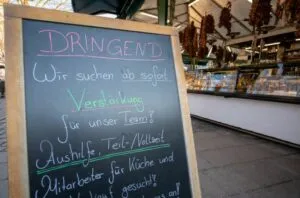 DRINGEND
Wir suchen ab sofort
Verstärkung
für unser Team!
Aushilfe, Teil-/Vollzeit
Mitarbeiter für Küche und
gesucht!
an!